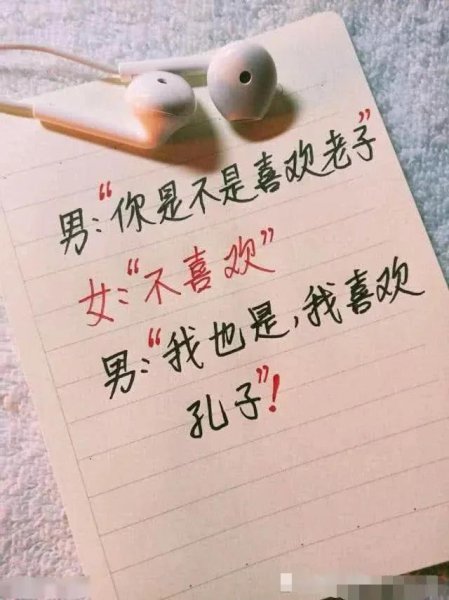 男:“你是不是喜欢老子”
女:“不喜欢”
男:“我也是,我喜欢
孔子”!